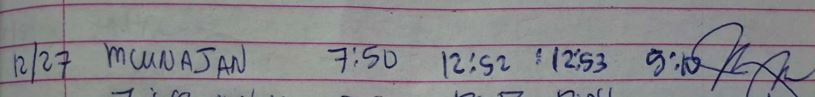 12/27 MCUNAJAN 7:50 12:52 12:53 5:10